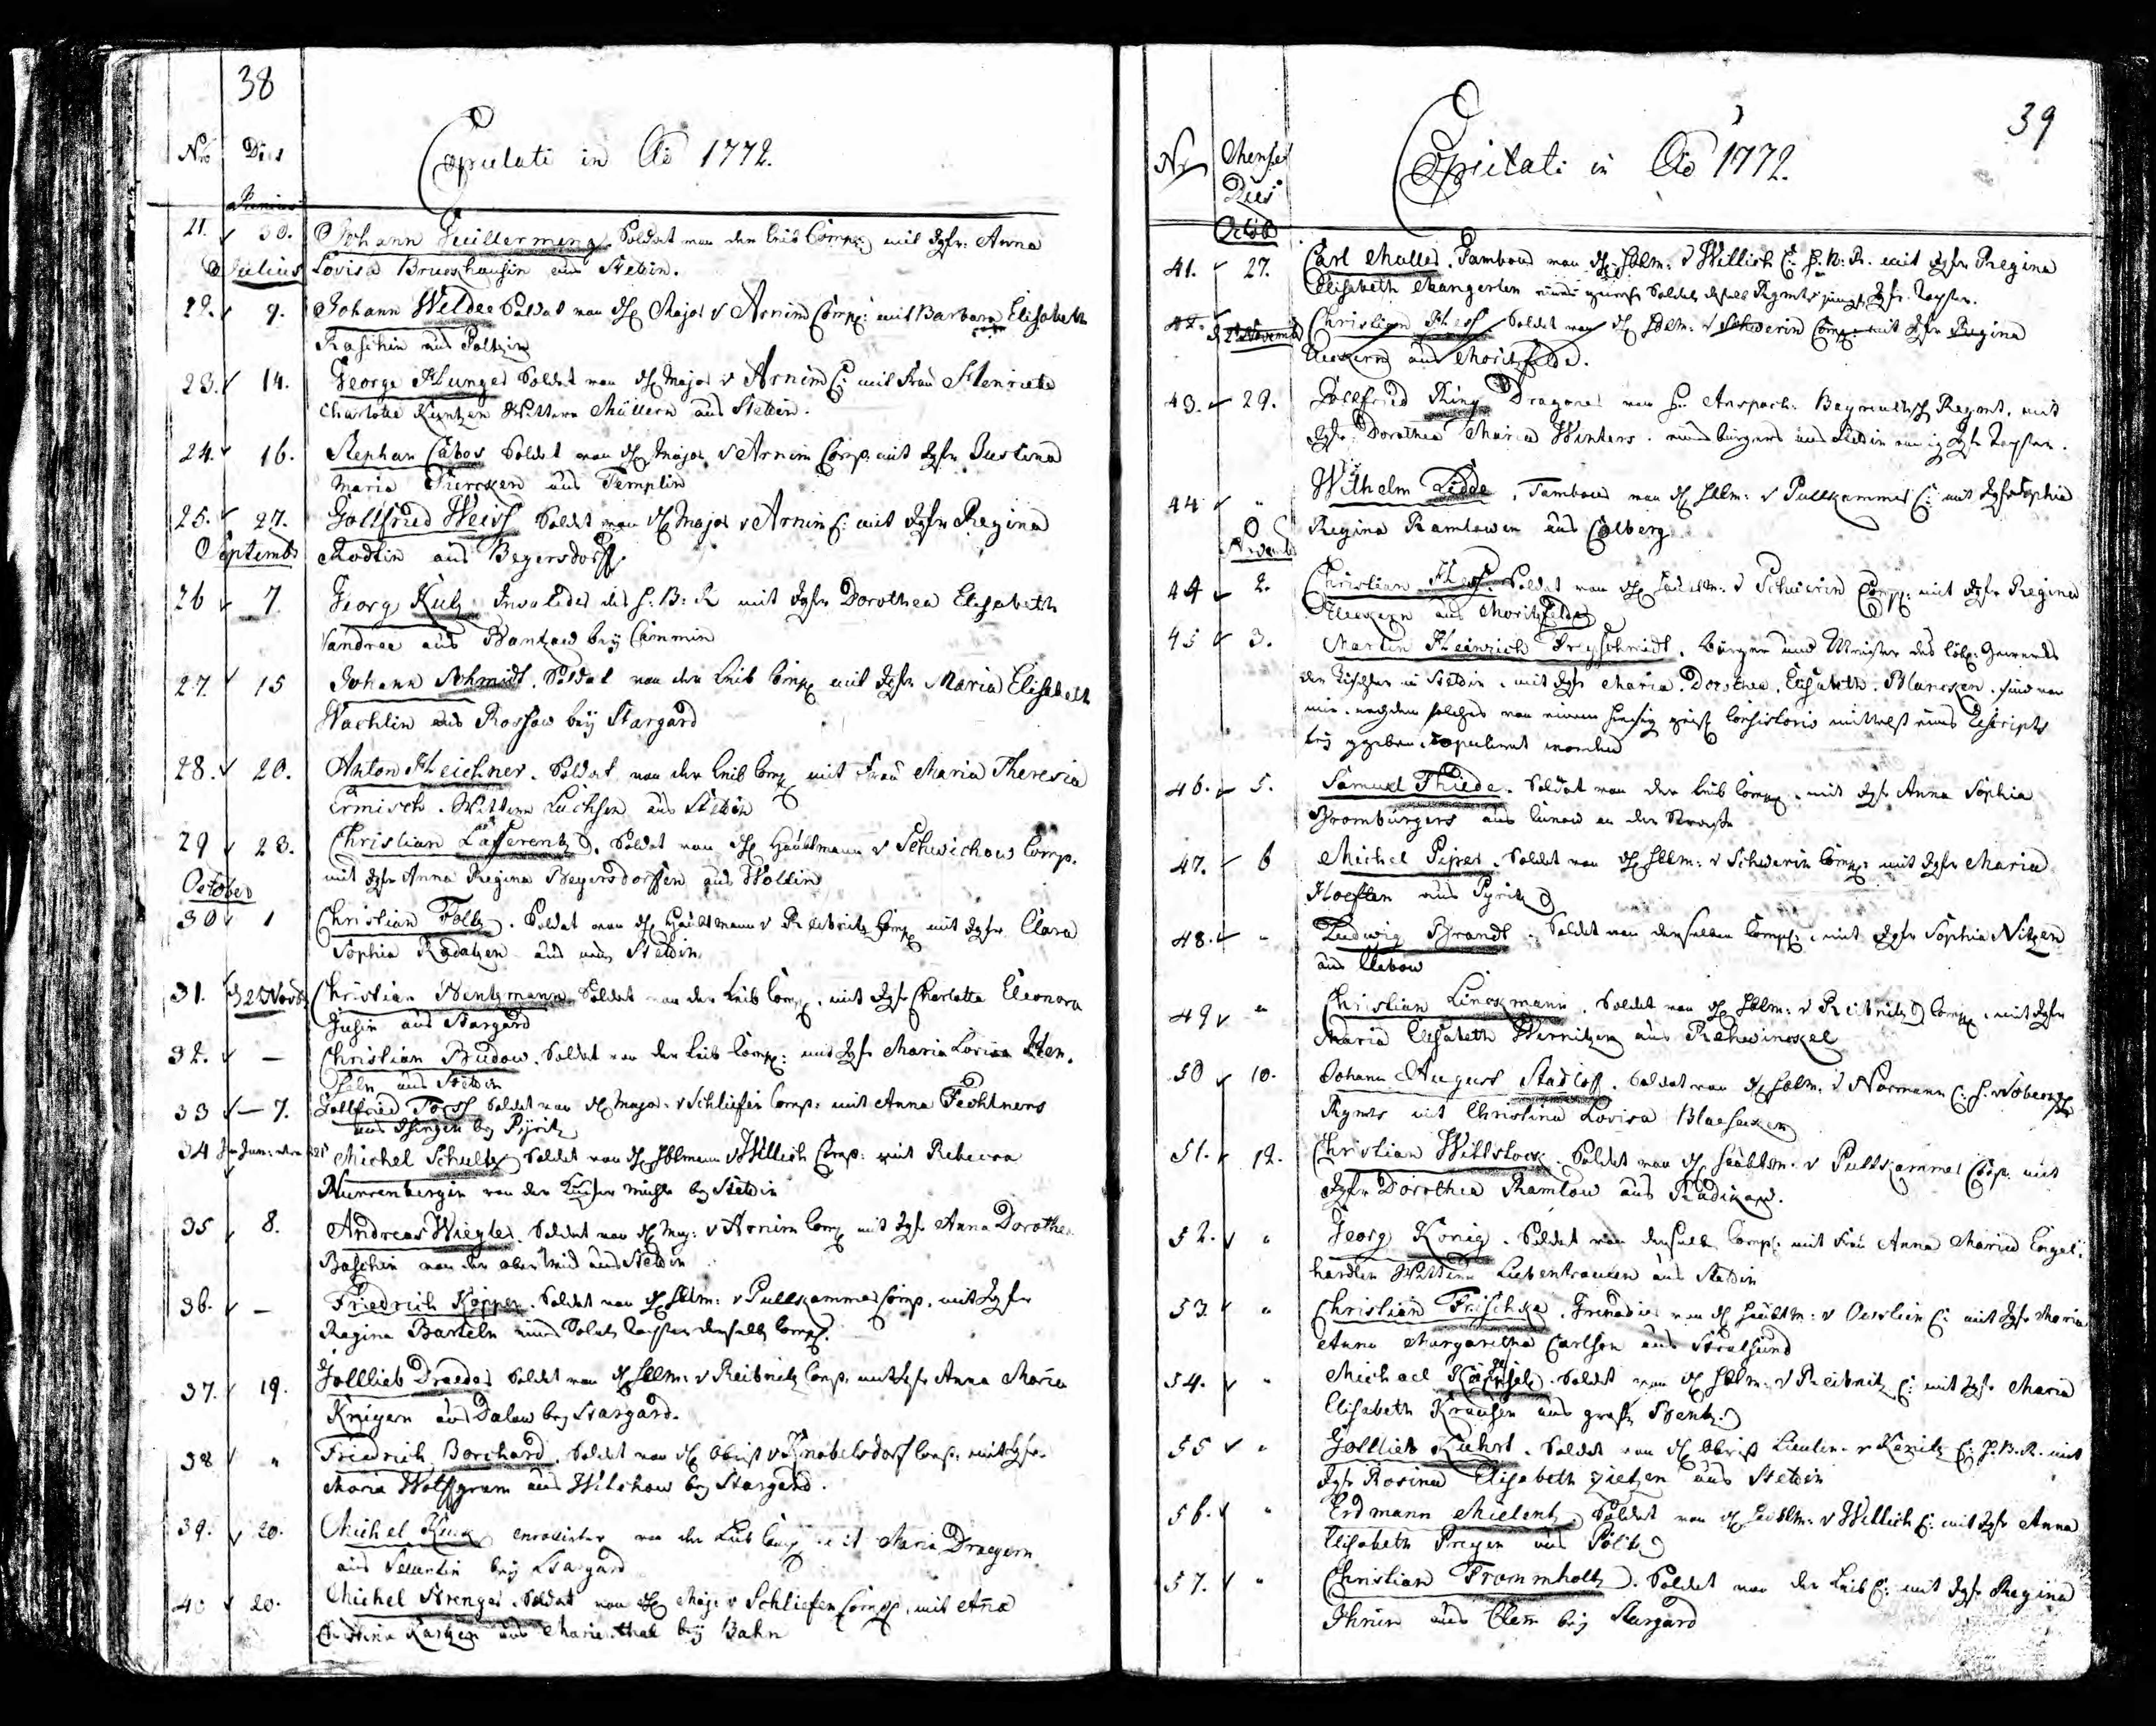 38
Nrô Dies
Copulati in Aô 1772.
Junius
21. 30. Johann Guillerming. Soldat von der Leib Comp: mit Jgfr: Anna
Julius Lovisa Brueshausin aus Stettin.
22. 9. Johann Welder Soldat von H. Major v Arnim Comp: mit Barbara Elisabeth
Raschin aus Poltzin
23. 14. George Klunger Soldat von H. Major v Arnim C: mit Frau Henriette
Charlotte Kuntzen Wittwe Müllern aus Stettin.
24. 16. Stephan Cabos Soldat von H. Major v Arnim Comp: mit Jgfr Justina
Maria Tiercken aus Templin
25. 27. Gottfried Weiss Soldat von H. Major v Arnim C: mit Jgfr Regina
Septembr Modlin aus Begersdorff.
26 7. Georg Kutz Invalider des H: B: R mit Jgfr Dorothea Elisabeth
Vandree aus bey Cammin
27. 15 Johann Schmidt. Soldat von der Leib Comp mit Jgfr Maria Elisabeth
Wachlin aus Rossow bey Stargard
28. 20. Anton Fleichner. Soldat von der Leib Comp mit Frau Maria Theresia
Ermisch. Wittwe Luchsen aus Stettin
29 23. Christian Lafferentz. Soldat von H. Hauptmann v Schwichow Comp.
mit Jgfr Anna Regina Beyersdorffen aus Wollin
October
30 1 Christian Foltz. Soldat von H. Hauptmann v Reibnitz Comp mit Jgfr Clara
Sophia Radatzen aus Stettin
31. d 2t Novbr Christian Hentzmann Soldat von der Leib Comp. mit Jgfr Charlotta Eleonora
Gusin aus Stargard
32. — Christian Budow. Soldat von der Leib Comp: mit Jgfr Maria Lovisa
aus Stettin
33 — 7. Gottfried Torss Soldat von H. Major v Schliefen Comp: mit Anna Fechtners
aus bey Pyritz
34 Michel Schultz Soldat von H. Hbtmann v Willich Comp: mit Rebecca
Nurrenbergin von der Mühle bey Stettin
35 8. Andreas Wiegler. Soldat von H. Maj: v Arnim Comp mit Jgfr Anna Dorothea
Baschin von der ober aus Stettin
36. — Friedrich Köppen. Soldat von H. Hbtm: v Puttkammer Comp. mit Jgfr
Regina Barteln eines Soldaten Tochter derselben Comp.
37. 19. Gottlieb Draeder Soldat von H. Hbtm: v Reibnitz Comp. mit Jgfr Anna Maria
Krügern aus Dalow bey Stargard.
38 " Friedrich Borchard. Soldat von H. Obrist v Knobelsdorf Comp. mit Jgfr.
Maria Wolffgram aus Witchow bey Stargard.
39. 20. Michel enrollirter von der Leib Comp mit Maria Draegern
aus bey Stargard
40 20. Michel Strenger. Soldat von H. Maj: v Schliefen Comp. mit Anna
Christina aus Marienthal bey Bahn
39
Nr Menses
Dies
Copulati in Aô 1772.
Octob
41. 27. Carl Muller. Tambour von H. Hbtm: v Willich C: H: N: R. mit Jgfr Regina
Elisabeth Mangerten eines Soldat Regmts Jgfr. Tochter.
42. d 2t Novemb Christian Hess Soldat von H. Hbtm: v Schwerin Comp: mit Jgfr Regina
aus Moritzfelde.
43. 29. Gottfried King Dragoner von H. Anspach: Bayreuthsch Regmt. mit
Jgfr: Dorothea Maria Winters. eines bürgers aus Stettin Jgfr Tochter.
44 " Wilhelm Lidde, Tambour von H. Hbtm: v Puttkammer C: mit Jgfr Sophia
Regina Ramlowen aus Colberg
Novemb
44 2. Christian Hess. Soldat von H. Hautbtm: v Schwerin Comp: mit Jgfr Regina
aus Moritzfelde
45 3. Martin Heinrich Freyschmidt. bürger und Meister des löbl: Gewercks
der Tischler in Stettin. mit Jgfr Maria. Dorothea. Elisabeth. Blancken. sind von
mir. nachdem solches von einem Consistorio mittelst eines Rescripts
copuliret worden
46. 5. Samuel Thiede. Soldat von der Leib Comp. mit Jgfr Anna Sophia
Bromburgers aus Cunow an der Strasse
47. 6 Michel Pipes. Soldat von H. Hbtm: v Schwerin Comp: mit Jgfr Maria
Hoefften aus Pyritz
48. " Ludwig Brandt. Soldat von derselben Comp. mit Jgfr Sophia Nitzen
aus Clebow
49 " Christian Linckmann. Soldat von H. Hbtm: v Reibnitz Comp. mit Jgfr
Maria Elisabeth Wernitzen aus Rehwinckel
50 10. Johann August Stadloff. Soldat von H. Hbtm. v Normann C: H.
Rgmts mit Christina Lovisa Blaesecken
51. 12. Christian Wittstock. Soldat von H. Haubtm. v Puttkammer Comp. mit
Jgfr Dorothea Ramlow aus Radikow.
52. " Georg König. Soldat von derselb. Comp. mit Frau Anna Maria Engel-
hardten Wittwe Liebentrauen aus Stettin
53. " Christian Frischka. Grenadier von H. Haubtm: v Oerslein C: mit Jgfr Maria
Anna Margaretha Carlson aus Stralsund
54. " Michael Soldat von H. Hbtm: v Reibnitz C: mit Jgfr Maria
Elisabeth Krausen aus gross
55 " Gottlieb Kuhrt. Soldat von H. Obrist Lieuten. v Kenitz C: H. B. R. mit
Jgfr Rosina Elisabeth Zietzen aus Stettin
56. " Erdmann Mielentz. Soldat von H. Haubtm. v Willich C: mit Jgfr Anna
Elisabeth Pregen aus Pölitz
57. " Christian Frommholtz. Soldat von der Leib C: mit Jgfr Regina
Ihnin aus Clem bey Stargard